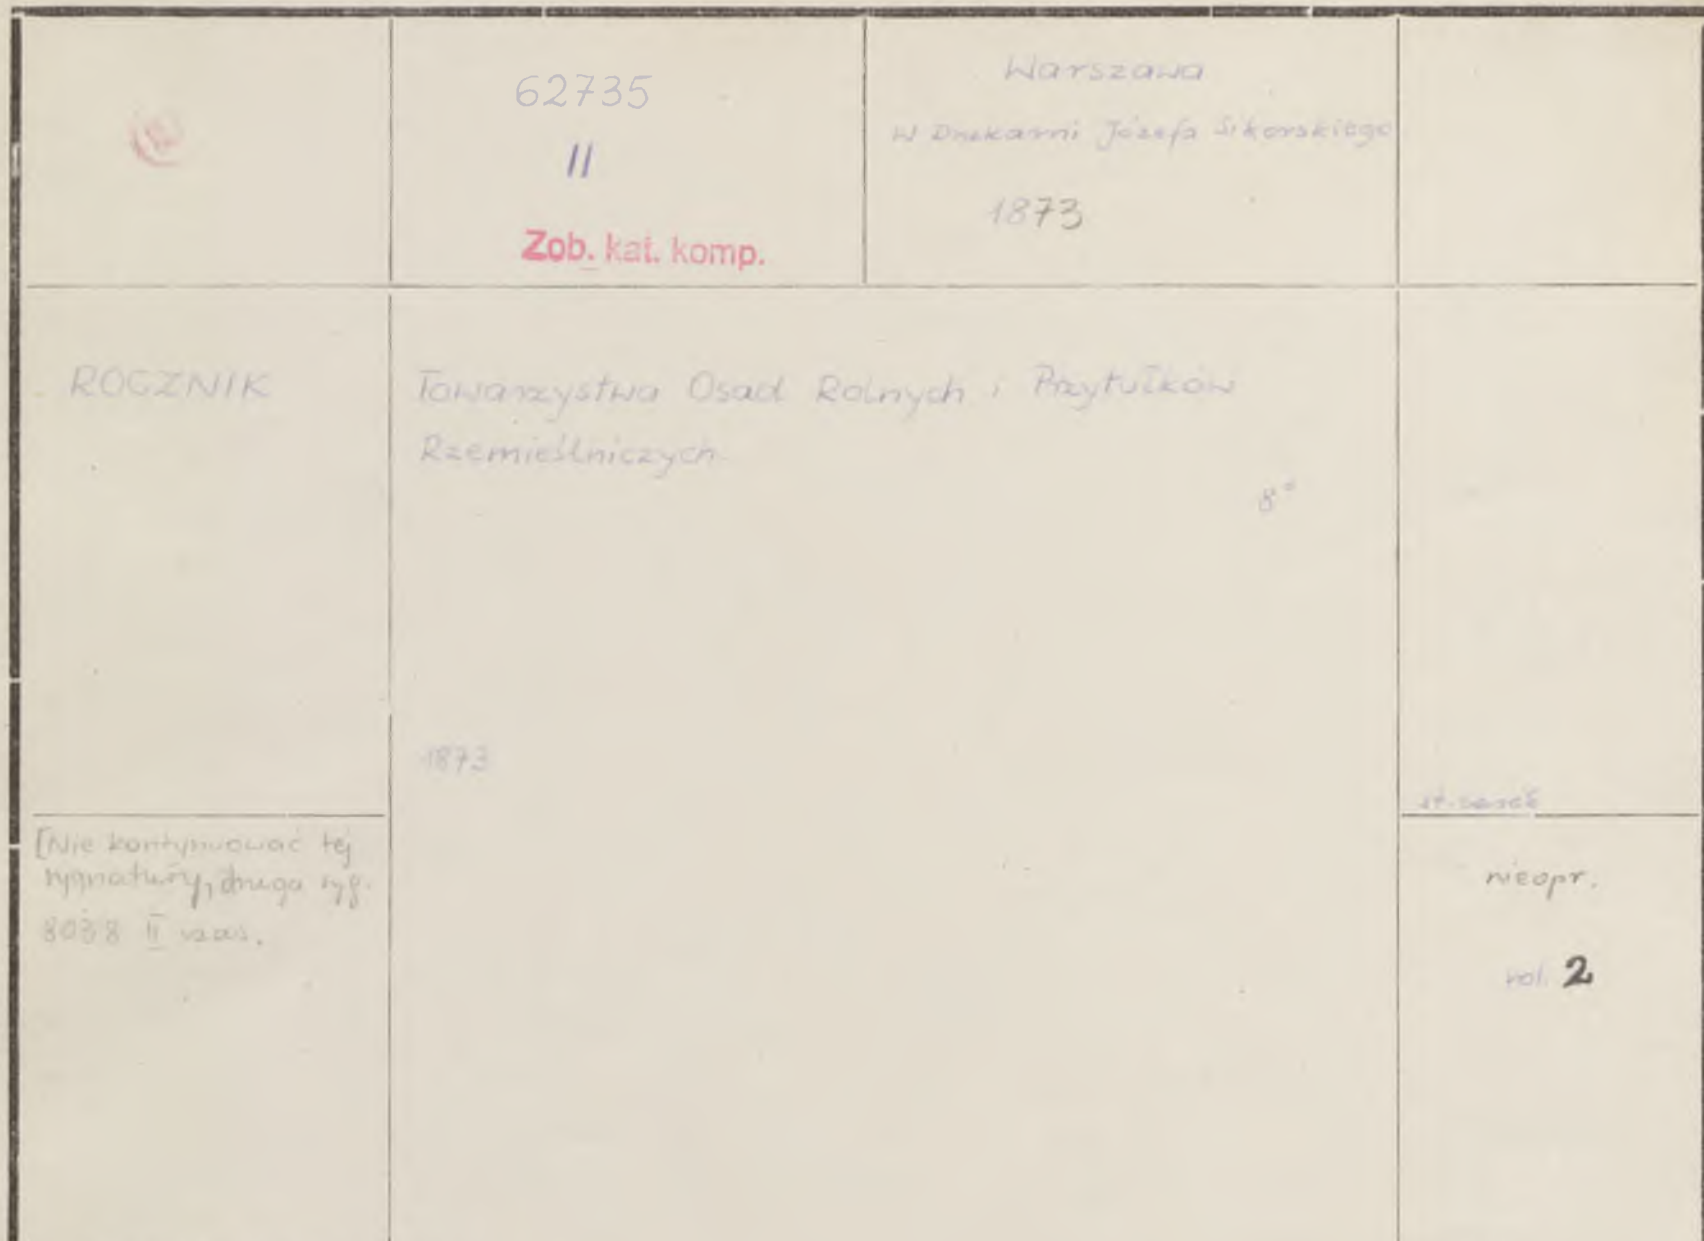 62735
II
Zob. kat. komp.
Warszawa
W Drukarni Józefa Sikorskiego
1873
ROCZNIK
Towarzystwa Osad Rolnych i Przytułków
Rzemieślniczych
8°
1873
[Nie kontynuować tej
sygnatury, druga syg.
8038 II czas.
nieopr.
vol. 2